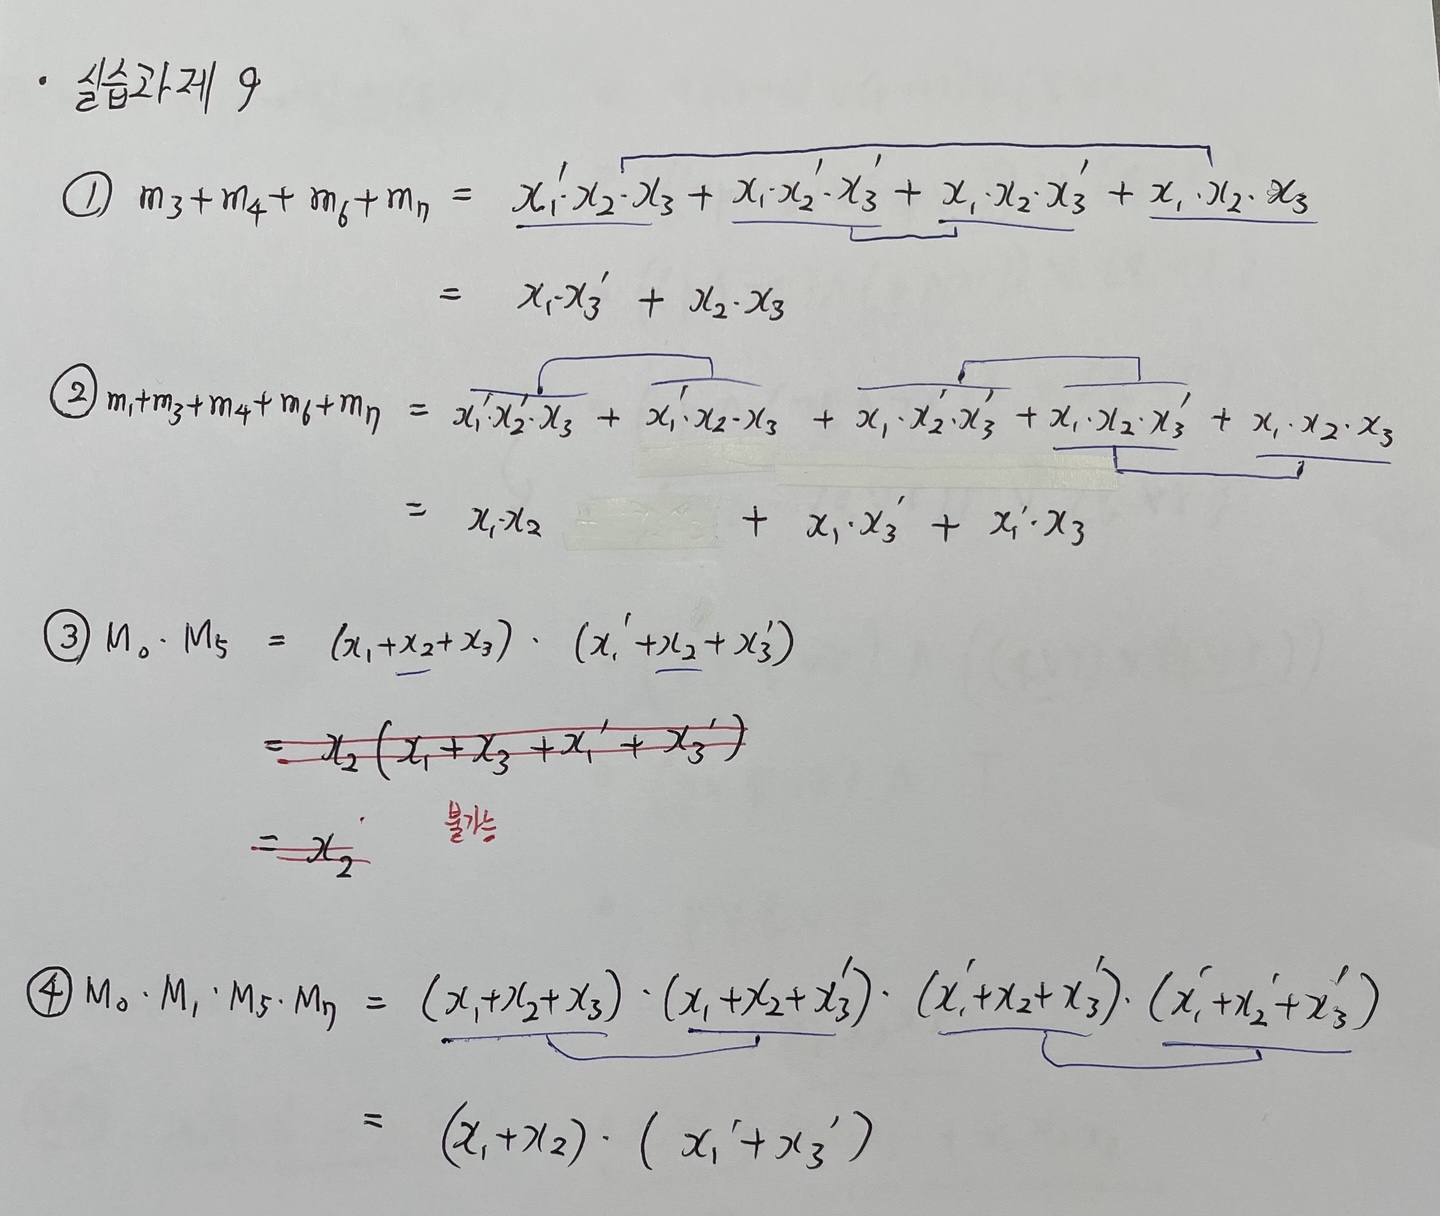 · 실습과제 9
① m₃+m₄+m₆+m₇ = x₁'·x₂·x₃ + x₁·x₂'·x₃' + x₁·x₂·x₃' + x₁·x₂·x₃
= x₁·x₃' + x₂·x₃
② m₁+m₃+m₄+m₆+m₇ = x₁'·x₂'·x₃ + x₁'·x₂·x₃ + x₁·x₂'·x₃' + x₁·x₂·x₃' + x₁·x₂·x₃
= x₁·x₂ + x₁·x₃' + x₁'·x₃
③ M₀·M₅ = (x₁+x₂+x₃)·(x₁'+x₂+x₃')
= x₂(x₁+x₃+x₁'+x₃')
= x₂ 불가능
④ M₀·M₁·M₅·M₇ = (x₁+x₂+x₃)·(x₁+x₂+x₃')·(x₁'+x₂+x₃')·(x₁'+x₂'+x₃')
= (x₁+x₂)·(x₁'+x₃')